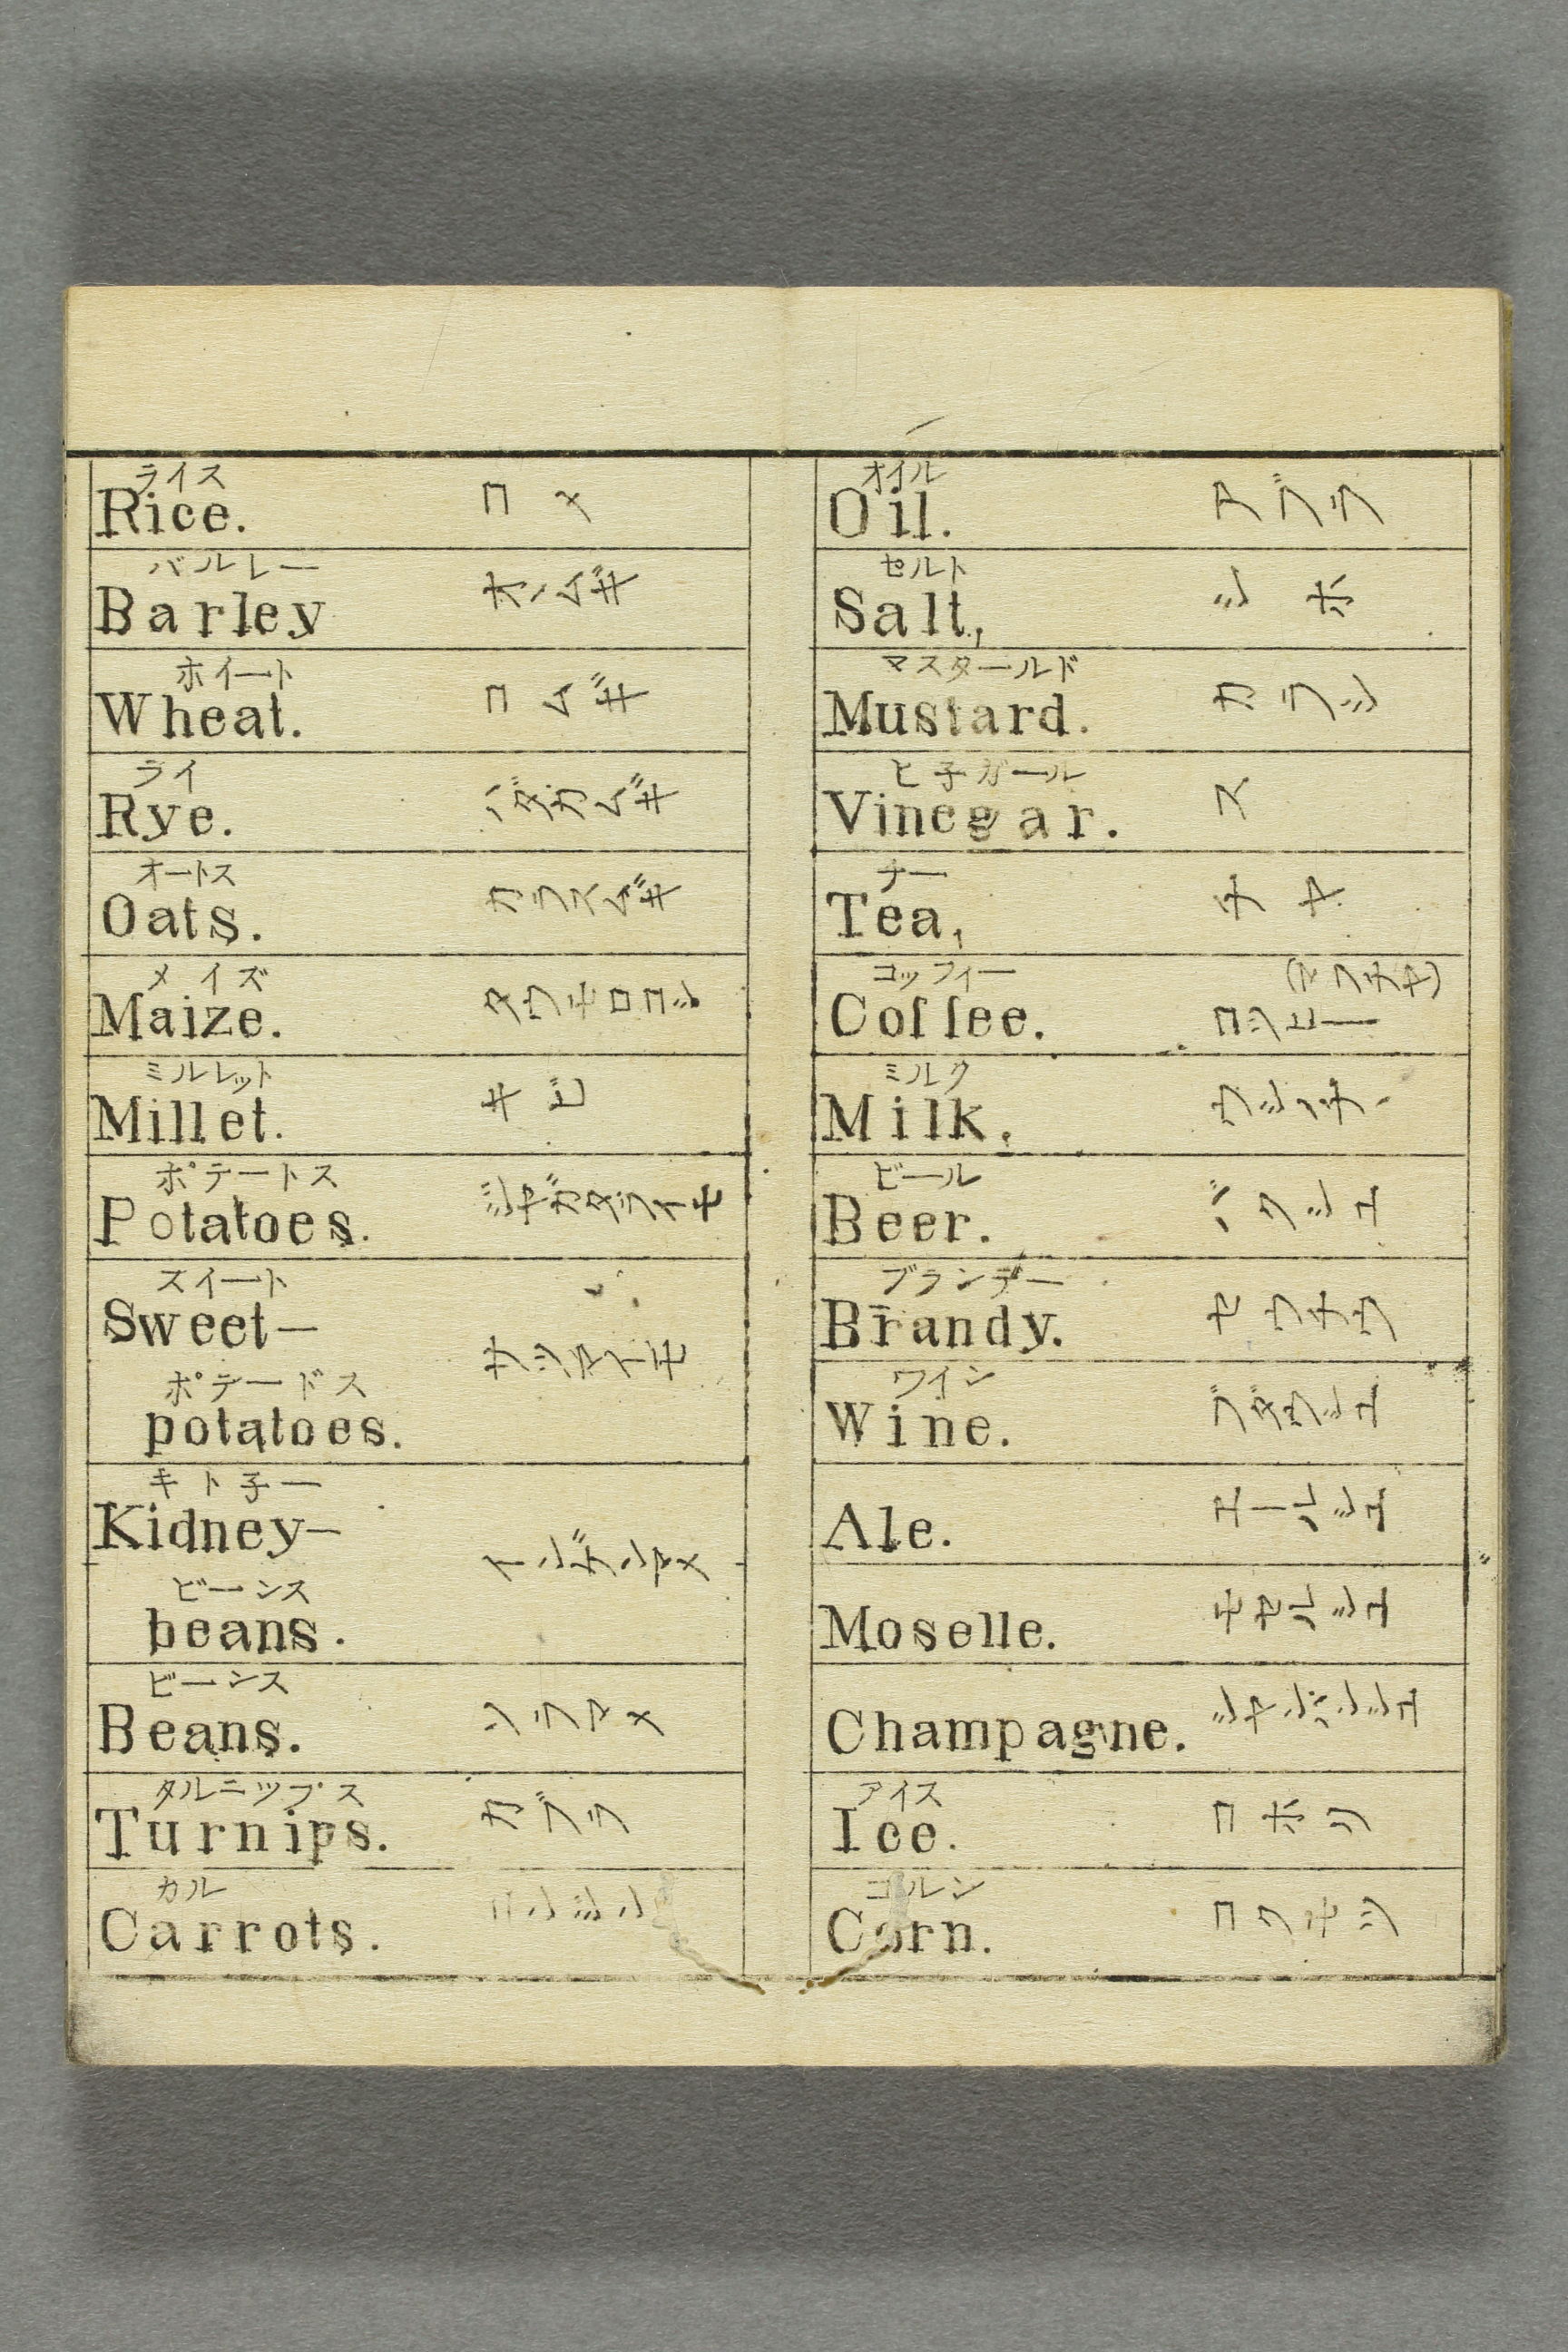 ライス
Rice. コメ
バルレー
Barley オヽムギ
ホイート
Wheat. コムギ
ライ
Rye. ハダカムギ
オートス
Oats. カラスムギ
メイズ
Maize. タウモロコシ
ミルレット
Millet. キビ
ポテートス
Potatoes. ジャガタライモ
スイート
Sweet—
サツマイモ
ポテードス
potatoes.
キト子ー
Kidney—
インゲンマメ
ビーンス
beans.
ビーンス
Beans. ソラマメ
タルニップス
Turnips. カブラ
カル
Carrots. ニンジン
オイル
Oil. アブラ
セルト
Salt, シホ
マスタールド
Mustard. カラシ
ヒ子ガール
Vinegar. ス
チー
Tea, チャ
コッフィー
Coffee. コッヒー
ミルク
Milk, ウシノチヽ
ビール
Beer. バクシユ
ブランデー
Brandy. セウチウ
ワイン
Wine. ブダウシユ
Ale. エールシユ
Moselle. モセルシユ
Champagne. シャンパンシユ
アイス
Ice. コホリ
コルン
Corn. コクモツ